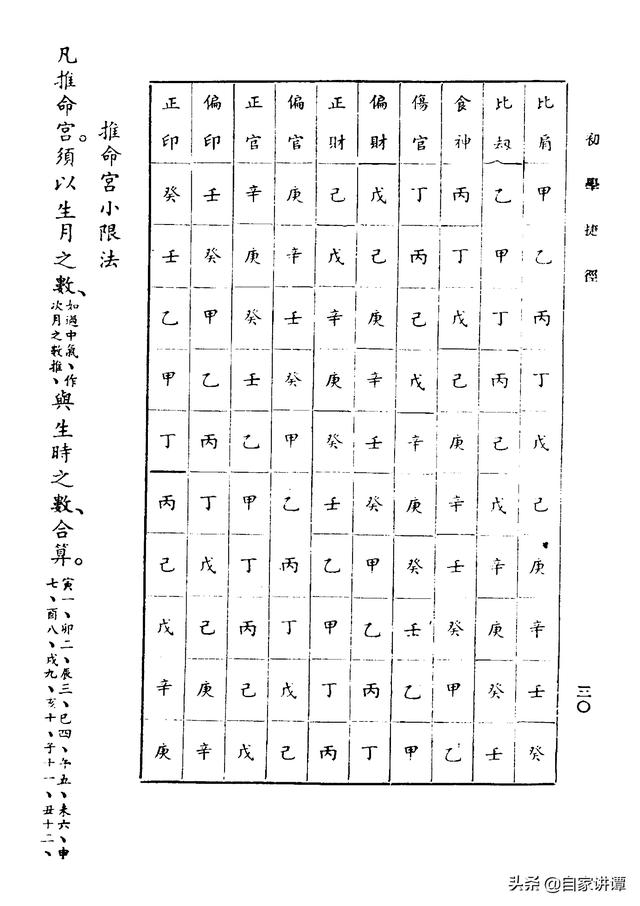 初學捷徑
三〇
比肩 甲 乙 丙 丁 戊 己 庚 辛 壬 癸
比劫 乙 甲 丁 丙 己 戊 辛 庚 癸 壬
食神 丙 丁 戊 己 庚 辛 壬 癸 甲 乙
傷官 丁 丙 己 戊 辛 庚 癸 壬 乙 甲
偏財 戊 己 庚 辛 壬 癸 甲 乙 丙 丁
正財 己 戊 辛 庚 癸 壬 乙 甲 丁 丙
偏官 庚 辛 壬 癸 甲 乙 丙 丁 戊 己
正官 辛 庚 癸 壬 乙 甲 丁 丙 己 戊
偏印 壬 癸 甲 乙 丙 丁 戊 己 庚 辛
正印 癸 壬 乙 甲 丁 丙 己 戊 辛 庚
推命宮小限法
凡推命宮。須以生月之數、如過中氣、作次月之數推、與生時之數、合算。寅一、卯二、辰三、巳四、午五、未六、申七、酉八、戌九、亥十、子十一、丑十二、
头条 @自家讲谭